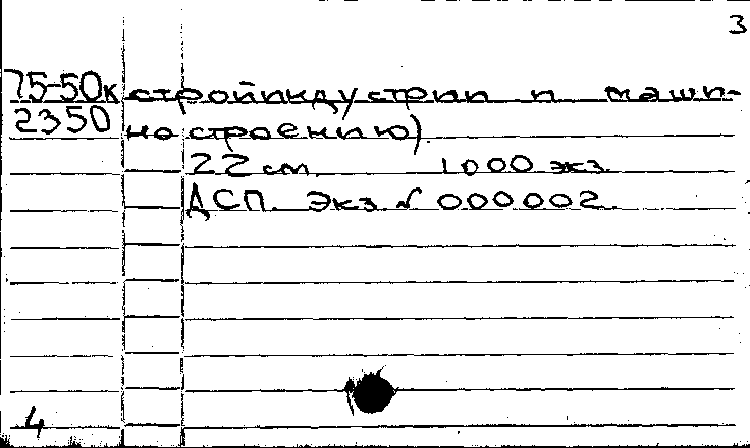 3
75-50к стройиндустрии и маши-
2350 ностроению)
22 см. 1000 экз.
ДСП. Экз. № 000002.
4